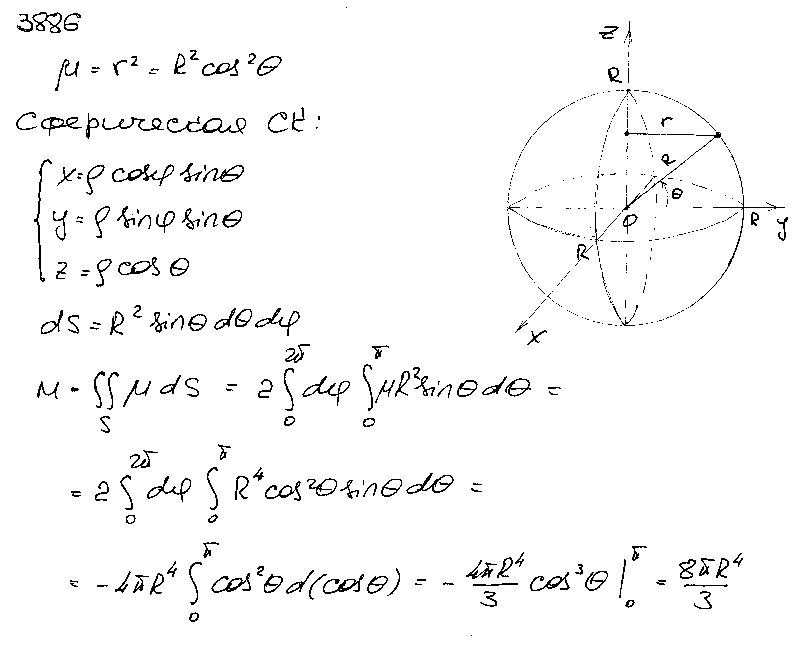 3886
μ = r² = R² cos² θ
Сферическая СК:
x = ρ cosφ sinθ
y = ρ sinφ sinθ
z = ρ cos θ
dS = R² sinθ dθ dφ
M = ∬_S μ dS = 2 ∫_0^{2π} dφ ∫_0^π μR² sinθ dθ =
= 2 ∫_0^{2π} dφ ∫_0^π R⁴ cos²θ sinθ dθ =
= - 4πR⁴ ∫_0^π cos²θ d(cosθ) = - 4πR⁴/3 cos³ θ |_0^π = 8πR⁴/3
z
R
r
R
θ
O
R
y
R
x